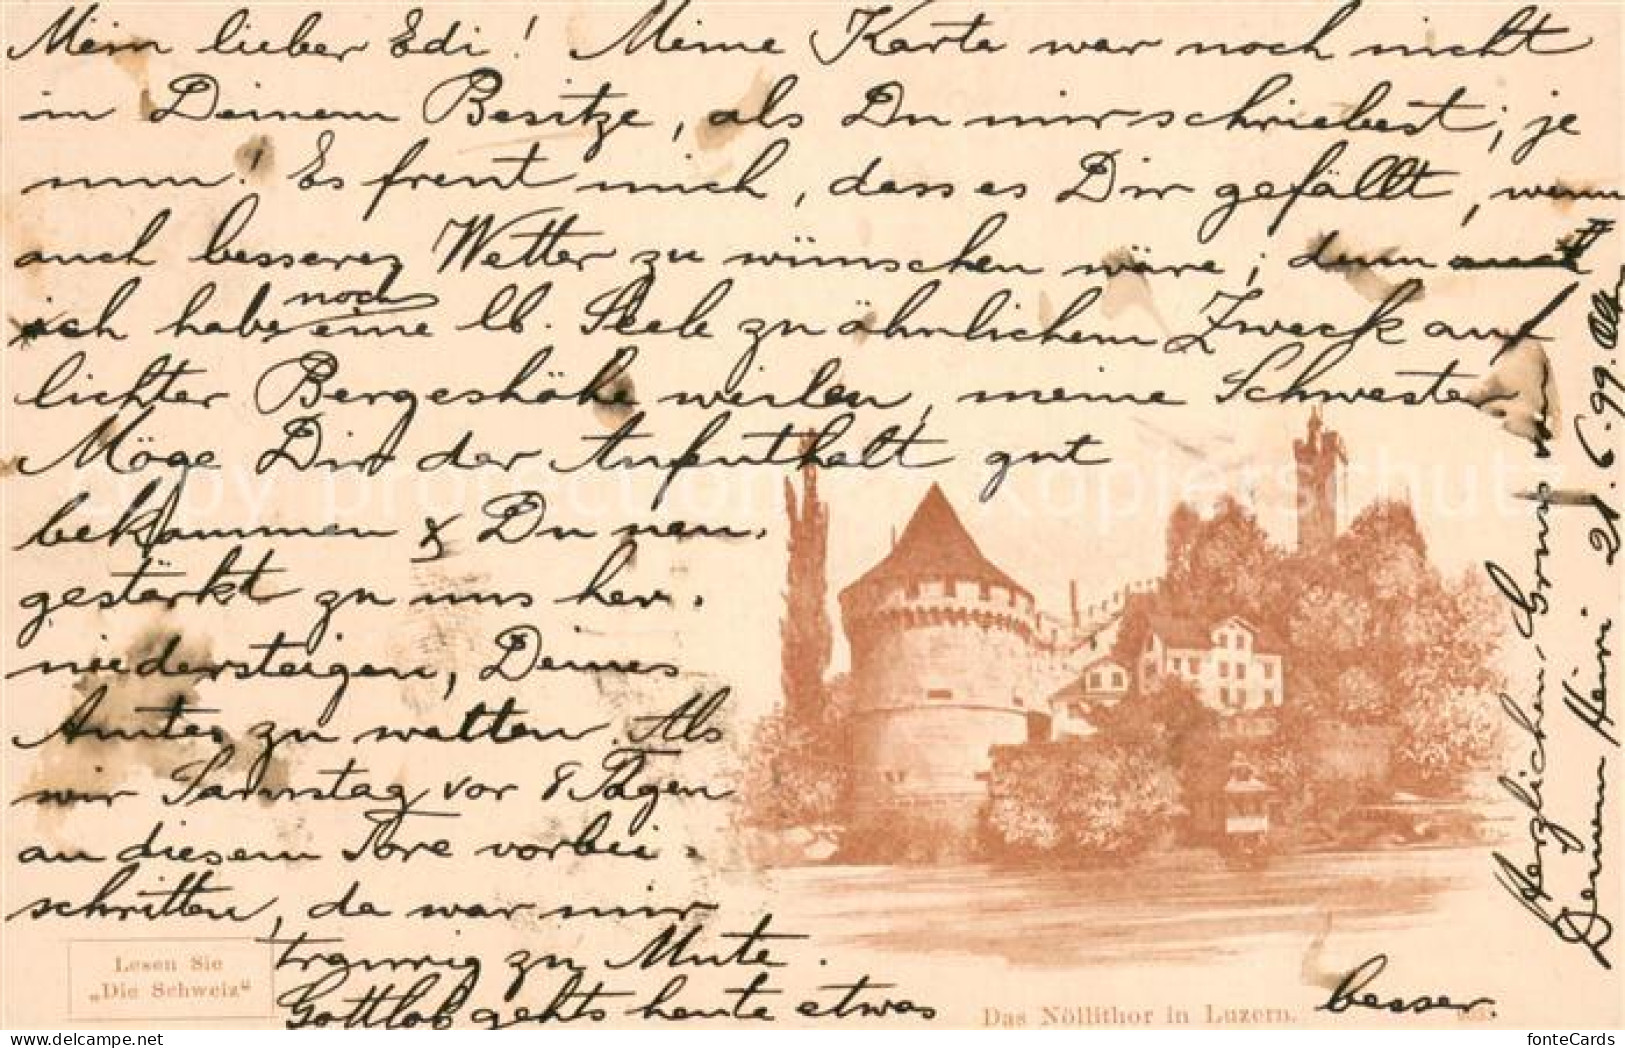 Mein lieber Edi! Meine Karte war noch nicht
in Deinem Besitze, als Du mir schriebest; je
nun! Es freut mich, dass es Dir gefällt, wenn
auch besseres Wetter zu wünschen wäre; denn auch
ich habe noch eine lb. Seele zu ähnlichem Zweck auf
lichter Bergeshöhe weilen, meine Schwester
Möge Dir der Aufenthalt gut
bekommen & Du neu-
gestärkt zu uns her-
niedersteigen, Deines
Amtes zu walten. Als
wir Samstag vor 8 Tagen
an diesem Tore vorbei-
schritten, da war mir
traurig zu Mute.
Gottlob gehts heute etwas
besser.
Herzlichen Gruss von
Deinem Heini 21.6.99.
Lesen Sie
„Die Schweiz“
Das Nöllithor in Luzern.
copy protection kopierschutz
fonteCards